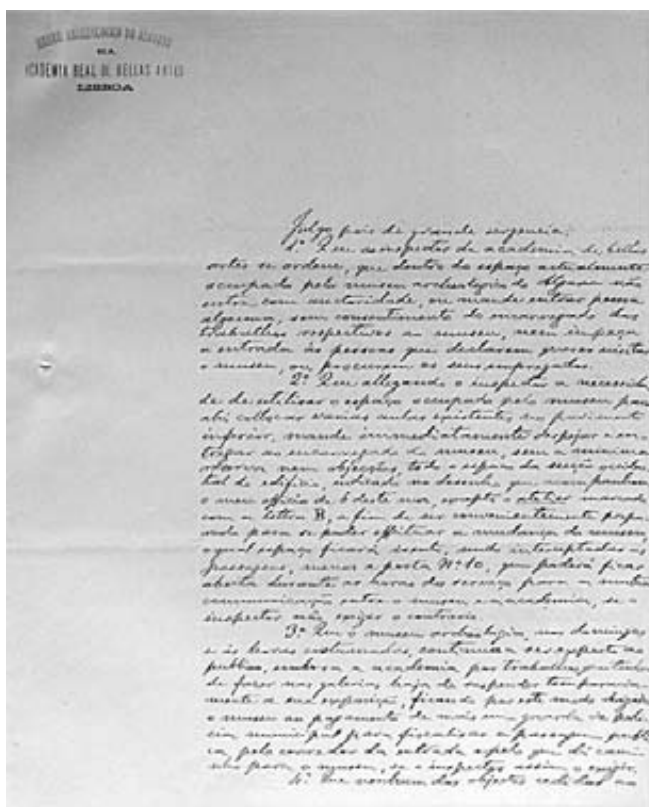 MUSEU ARCHEOLOGICO DO ALGARVE
NA
ACADEMIA REAL DE BELLAS ARTES
LISBOA
Julgo pois de grande urgencia:
1º Que ao inspector da academia de bellas
artes se ordene, que dentro do espaço actualmente
occupado pelo museu archeologico do Algarve não
entre com auctoridade, ou mande entrar pessoa
alguma, sem consentimento do encarregado dos
trabalhos respectivos ao museu, nem impeça
a entrada ás pessoas que declarem querer visitar
o museu, ou procurem os seus empregados.
2º Que allegando o inspector a necessida-
de de utilisar o espaço occupado pelo museu para
ali collocar varias aulas existentes no pavimento
inferior, mande immediatamente despejar e en-
tregar ao encarregado do museu, sem a minima
nem objecções, todo o espaço da secção occiden-
tal do edificio, indicado no desenho que acompanhou
o meu officio de 6 deste mez, excepto o atelier marcado
com a letra B, a fim de ser convenientemente prepa-
rado para se poder effeituar a mudança do museu,
o qual espaço ficará isento, sendo interceptadas as
passagens, menos a porta Nº 10, que poderá ficar
aberta durante as horas do serviço para a mutua
communicação entre o museu e a academia, se o
inspector não exigir o contrario.
3º Que o museu archeologico, nos domingos
e ás horas costumadas, continue a ser exposto ao
publico, embora a academia por trabalhos que tenha
de fazer nas galerias haja de suspender temporaria-
mente a sua exposição, ficando por este modo obrigado
o museu ao pagamento de mais um guarda da poli-
cia municipal para fiscalisar a passagem publi-
ca, pelo corredor da entrada áquelle que dá cami-
nho para o museu, se o inspector assim o exigir.
4º Que nenhum dos objectos cedidos ao